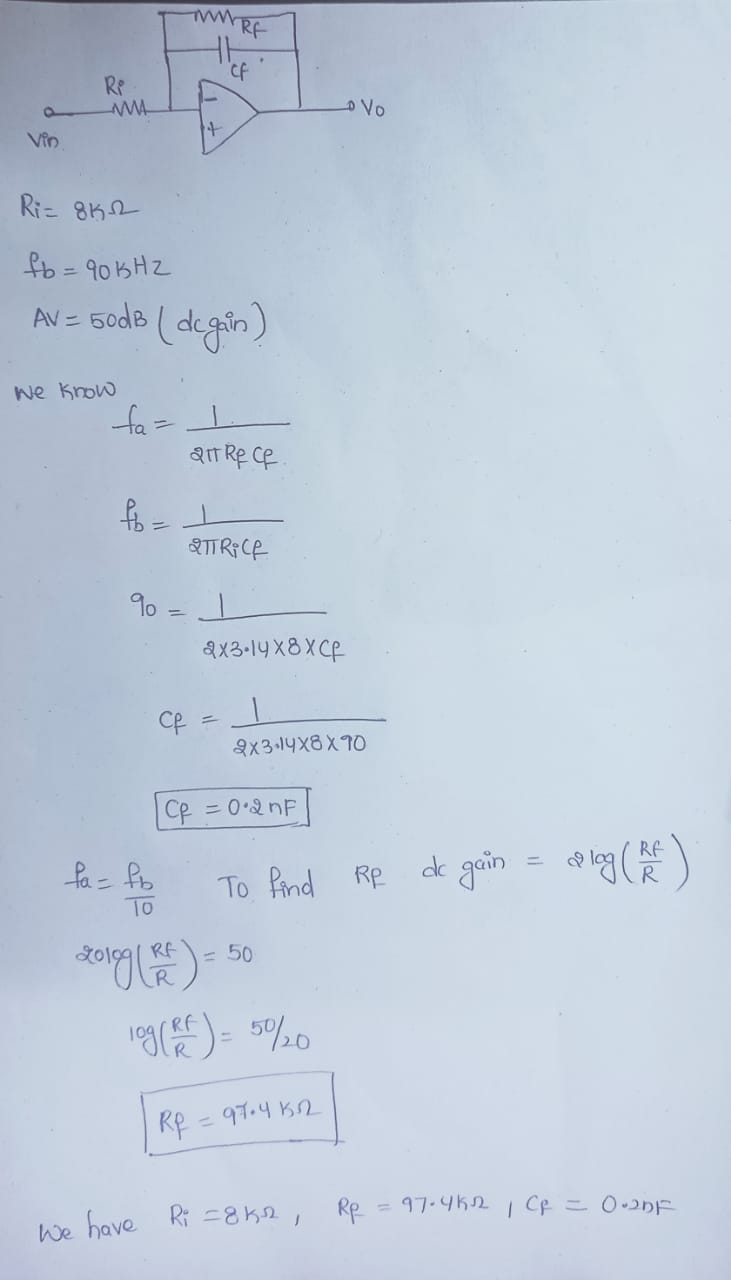 Rf
Cf
Ri
Vin
-
+
Vo
Ri = 8KΩ
fb = 90KHZ
AV = 50dB (dc gain)
We Know
fa = 1 / 2π Rf Cf
fb = 1 / 2π Ri Cf
90 = 1 / 2x3.14x8xCf
Cf = 1 / 2x3.14x8x90
Cf = 0.2nF
fa = fb / 10 To find Rf dc gain = 2log(Rf/R)
20log(Rf/R) = 50
log(Rf/R) = 50/20
Rf = 97.4 KΩ
We have Ri = 8KΩ, Rf = 97.4KΩ, Cf = 0.2nF